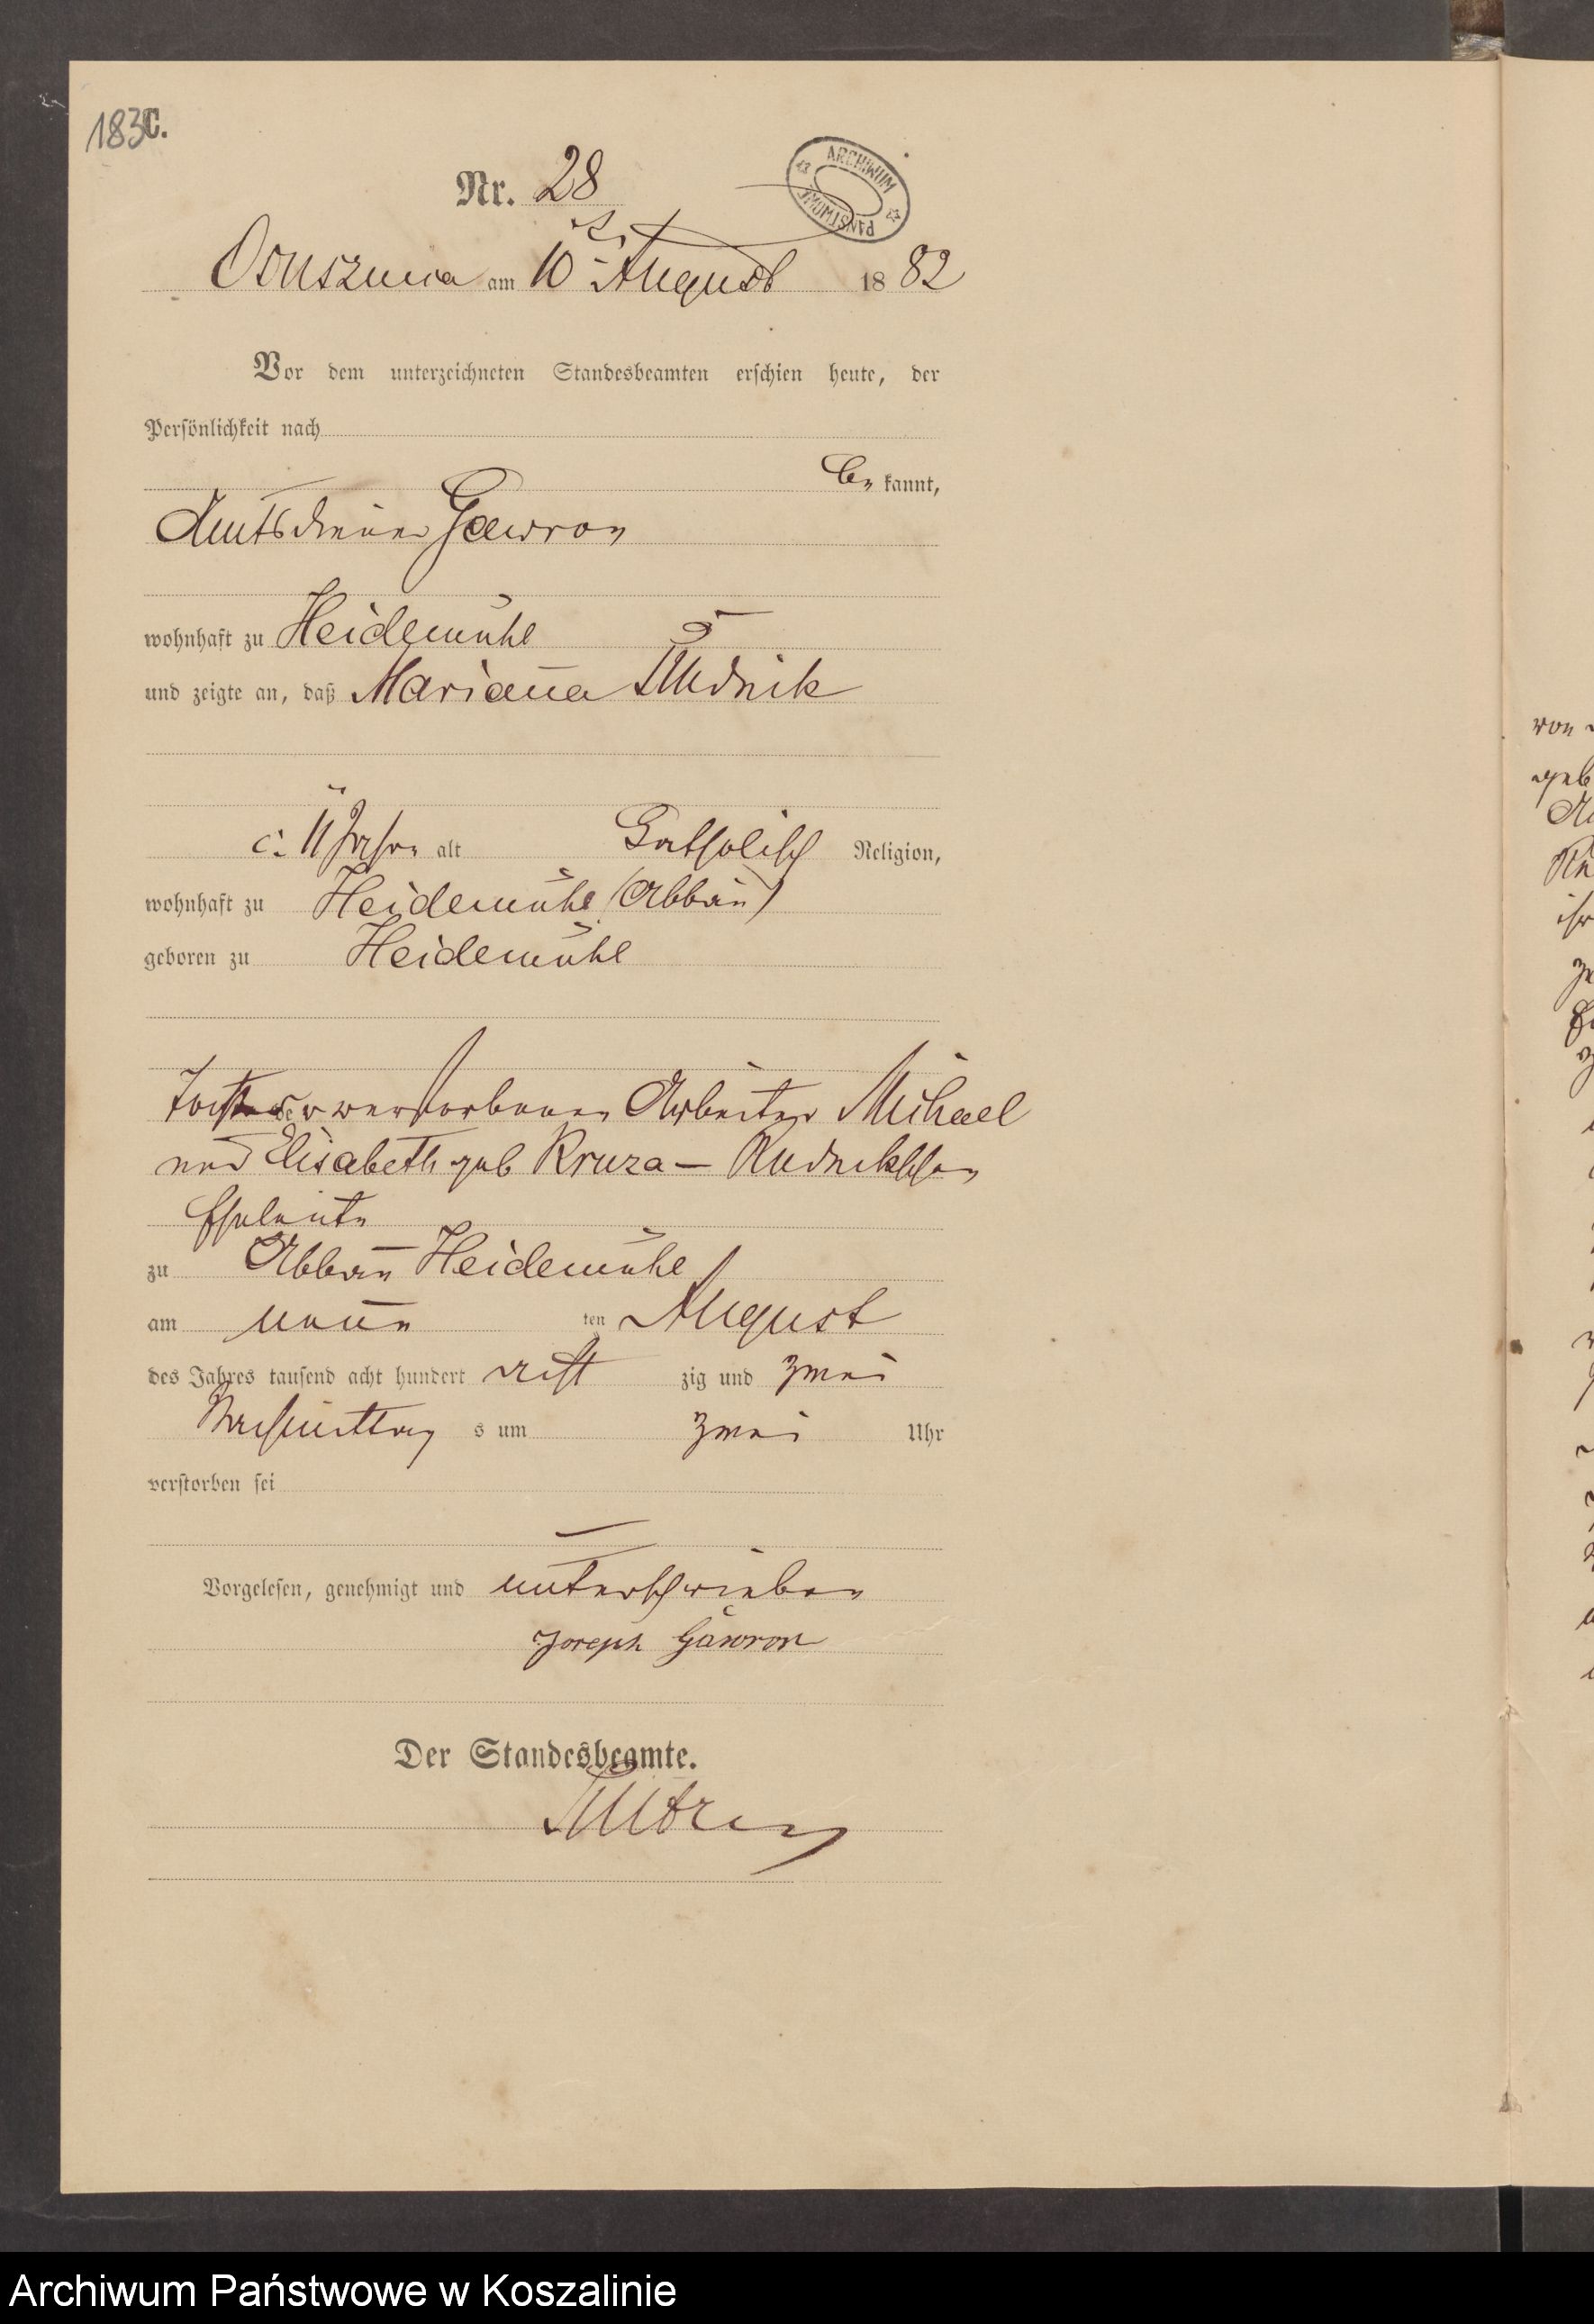 183
C.
ARCHIWUM PAŃSTWOWE
Nr. 28
Ossusznica am 10 ten August 1882
Vor dem unterzeichneten Standesbeamten erschien heute, der
Persönlichkeit nach
be kannt,
Amtsdiener Gawron
wohnhaft zu Heidemühl
und zeigte an, daß Marianna Rudnik
c: 11 Jahre alt Catholisch Religion,
wohnhaft zu Heidemühl (Abbau)
geboren zu Heidemühl
Tochter der verstorbenen Arbeiter Michael
und Elisabeth geb Kruza – Rudnikschen
Eheleute
zu Abbau Heidemühl
am neun ten August
des Jahres tausend acht hundert acht zig und zwei
Nachmittag s um zwei Uhr
verstorben sei
Vorgelesen, genehmigt und unterschrieben
Joseph Gawron
Der Standesbeamte.
von
geb
Archiwum Państwowe w Koszalinie